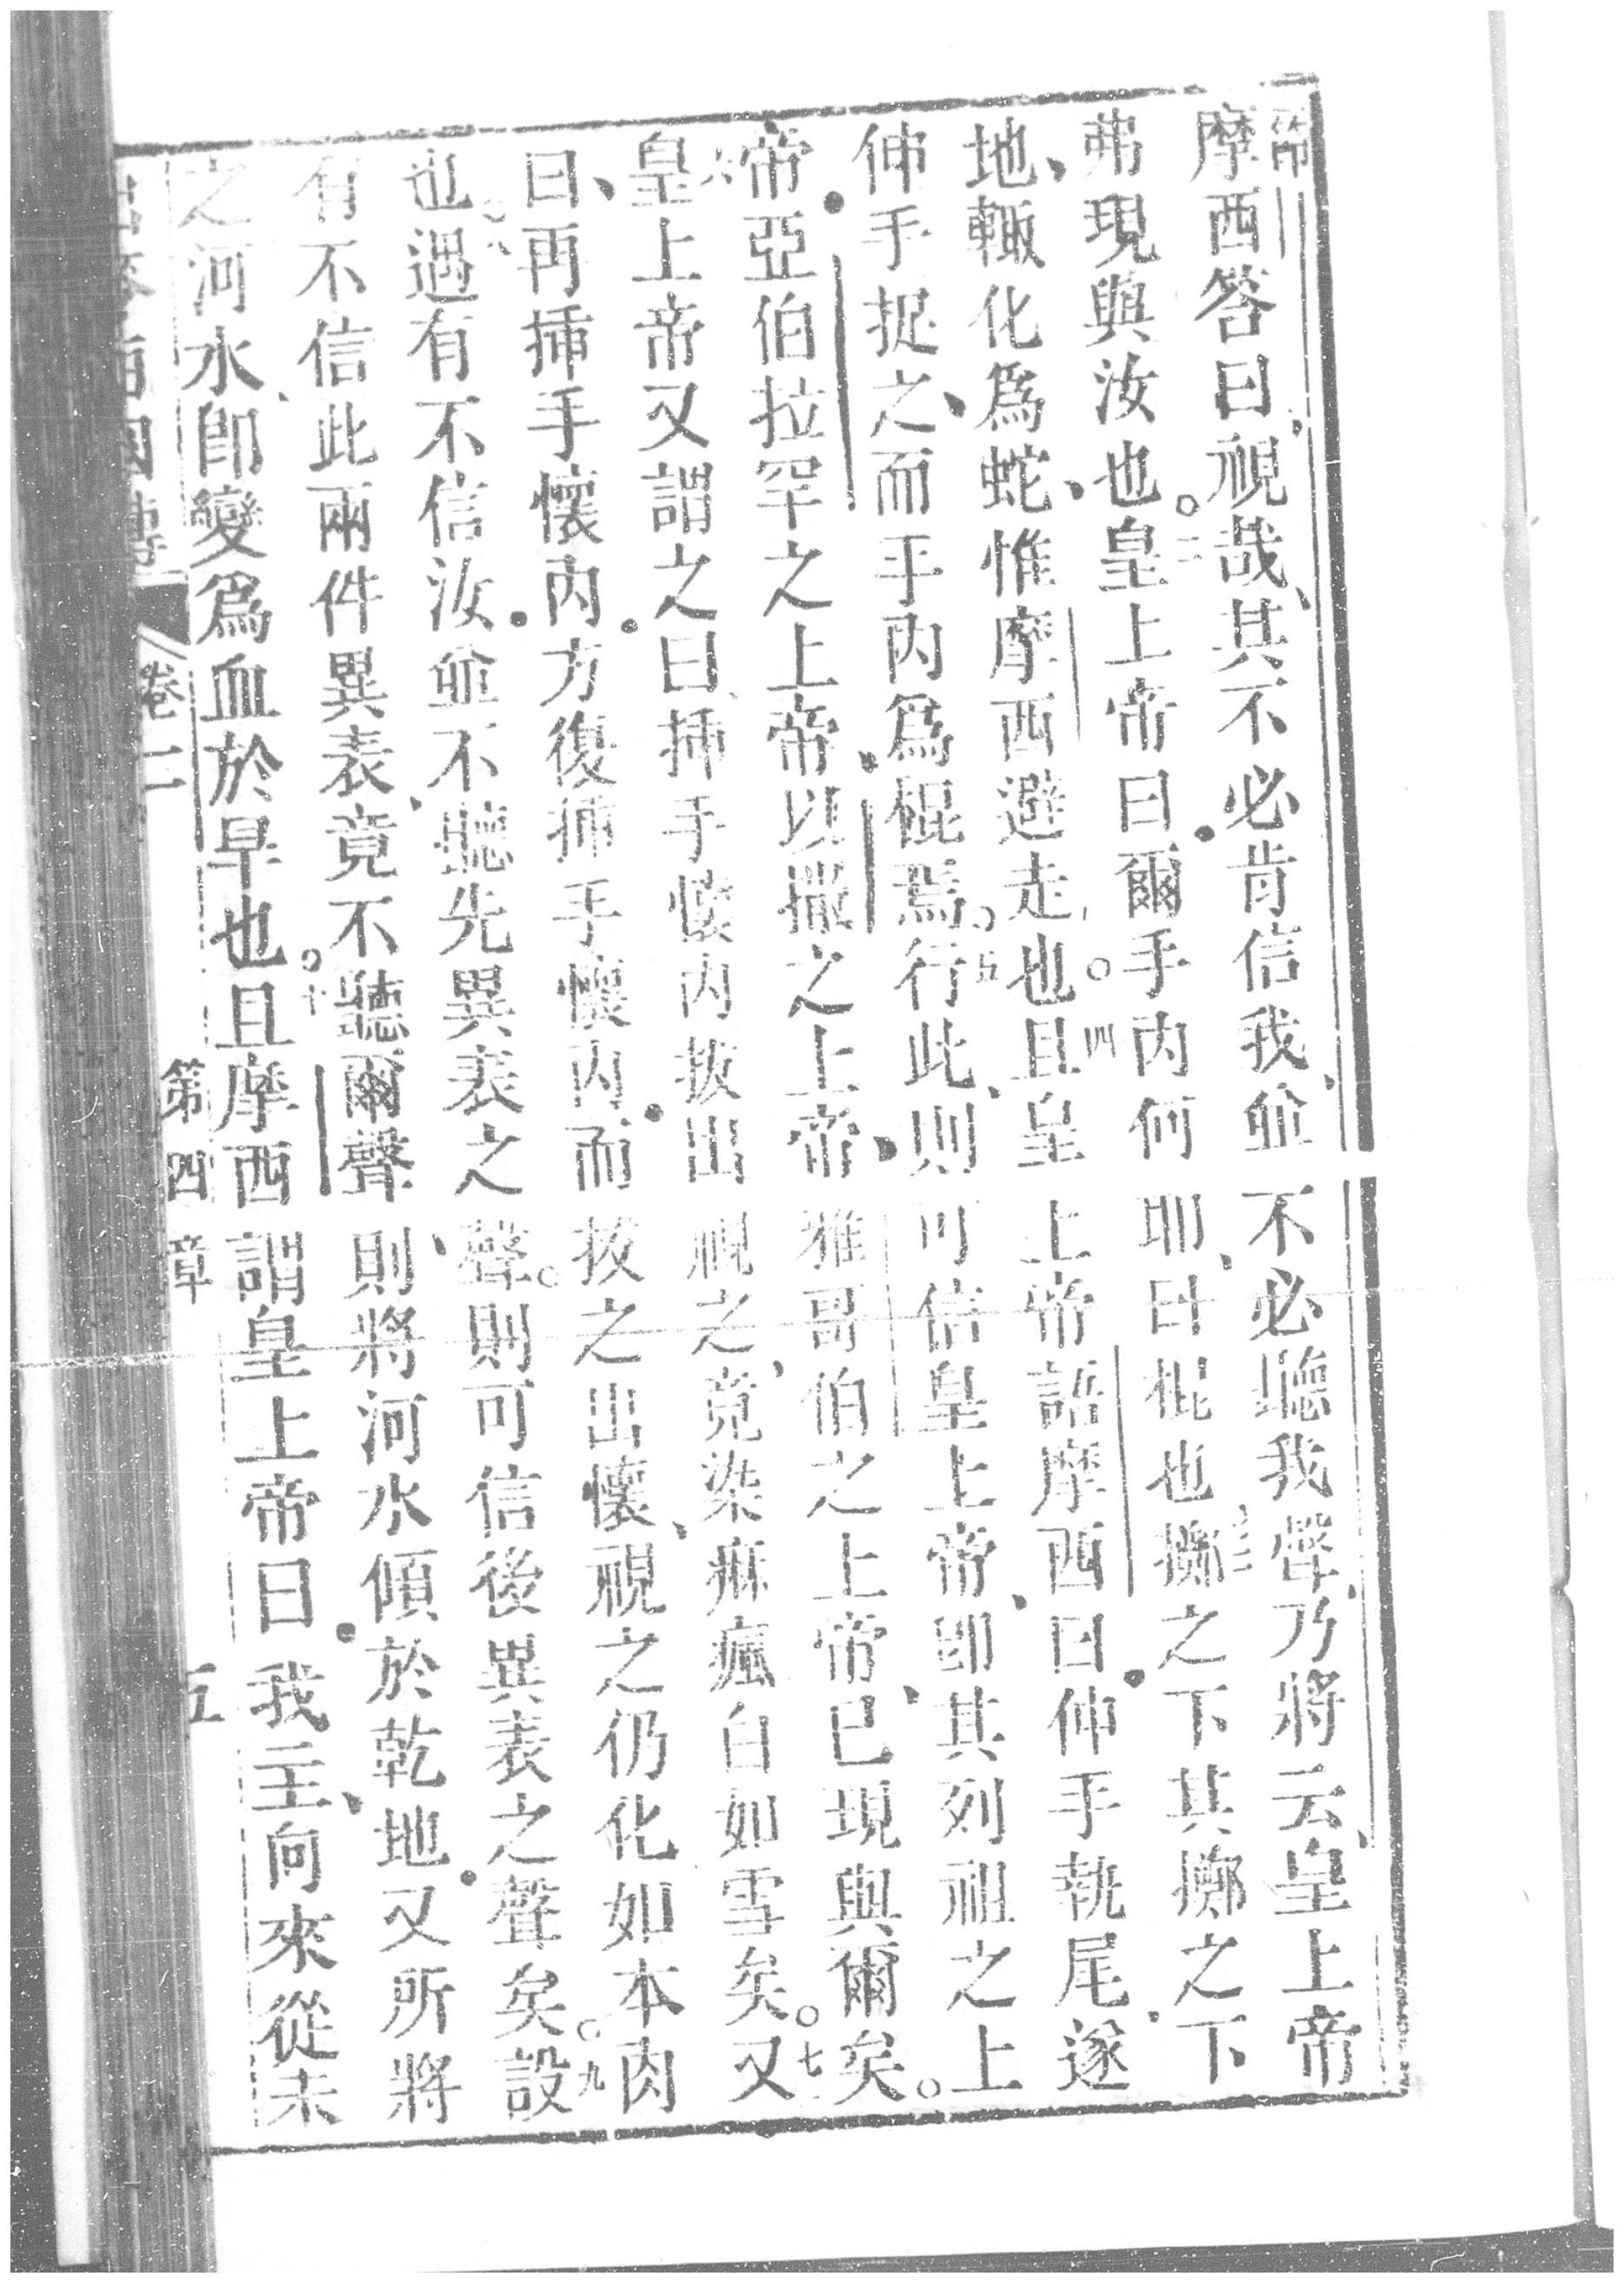 節摩西答曰視哉其不必肯信我並不必聽我聲乃將云皇上帝
弗現與汝也。二皇上帝曰爾手內何耶曰棍也三擲之下其擲之下
地輙化為蛇惟摩西避走也○四且皇上帝語摩西曰伸手執尾遂
伸手捉之而手內為棍焉○五行此則可信皇上帝卽其列祖之上
帝亞伯拉罕之上帝以撒之上帝雅哥伯之上帝已現與爾矣。
六皇上帝又謂之曰揷手懷內拔出視之竟染痳瘋白如雪矣○七又
曰再揷手懷內方復揷手懷內而拔之出懷視之仍化如本肉
也○八遇有不信汝並不聽先異表之聲○則可信後異表之聲矣○九設
有不信此兩件異表竟不聽爾聲則將河水傾於乾地又所將
之河水卽變為血於旱也○十且摩西謂皇上帝曰我主向來從未
卷二 第四章 五